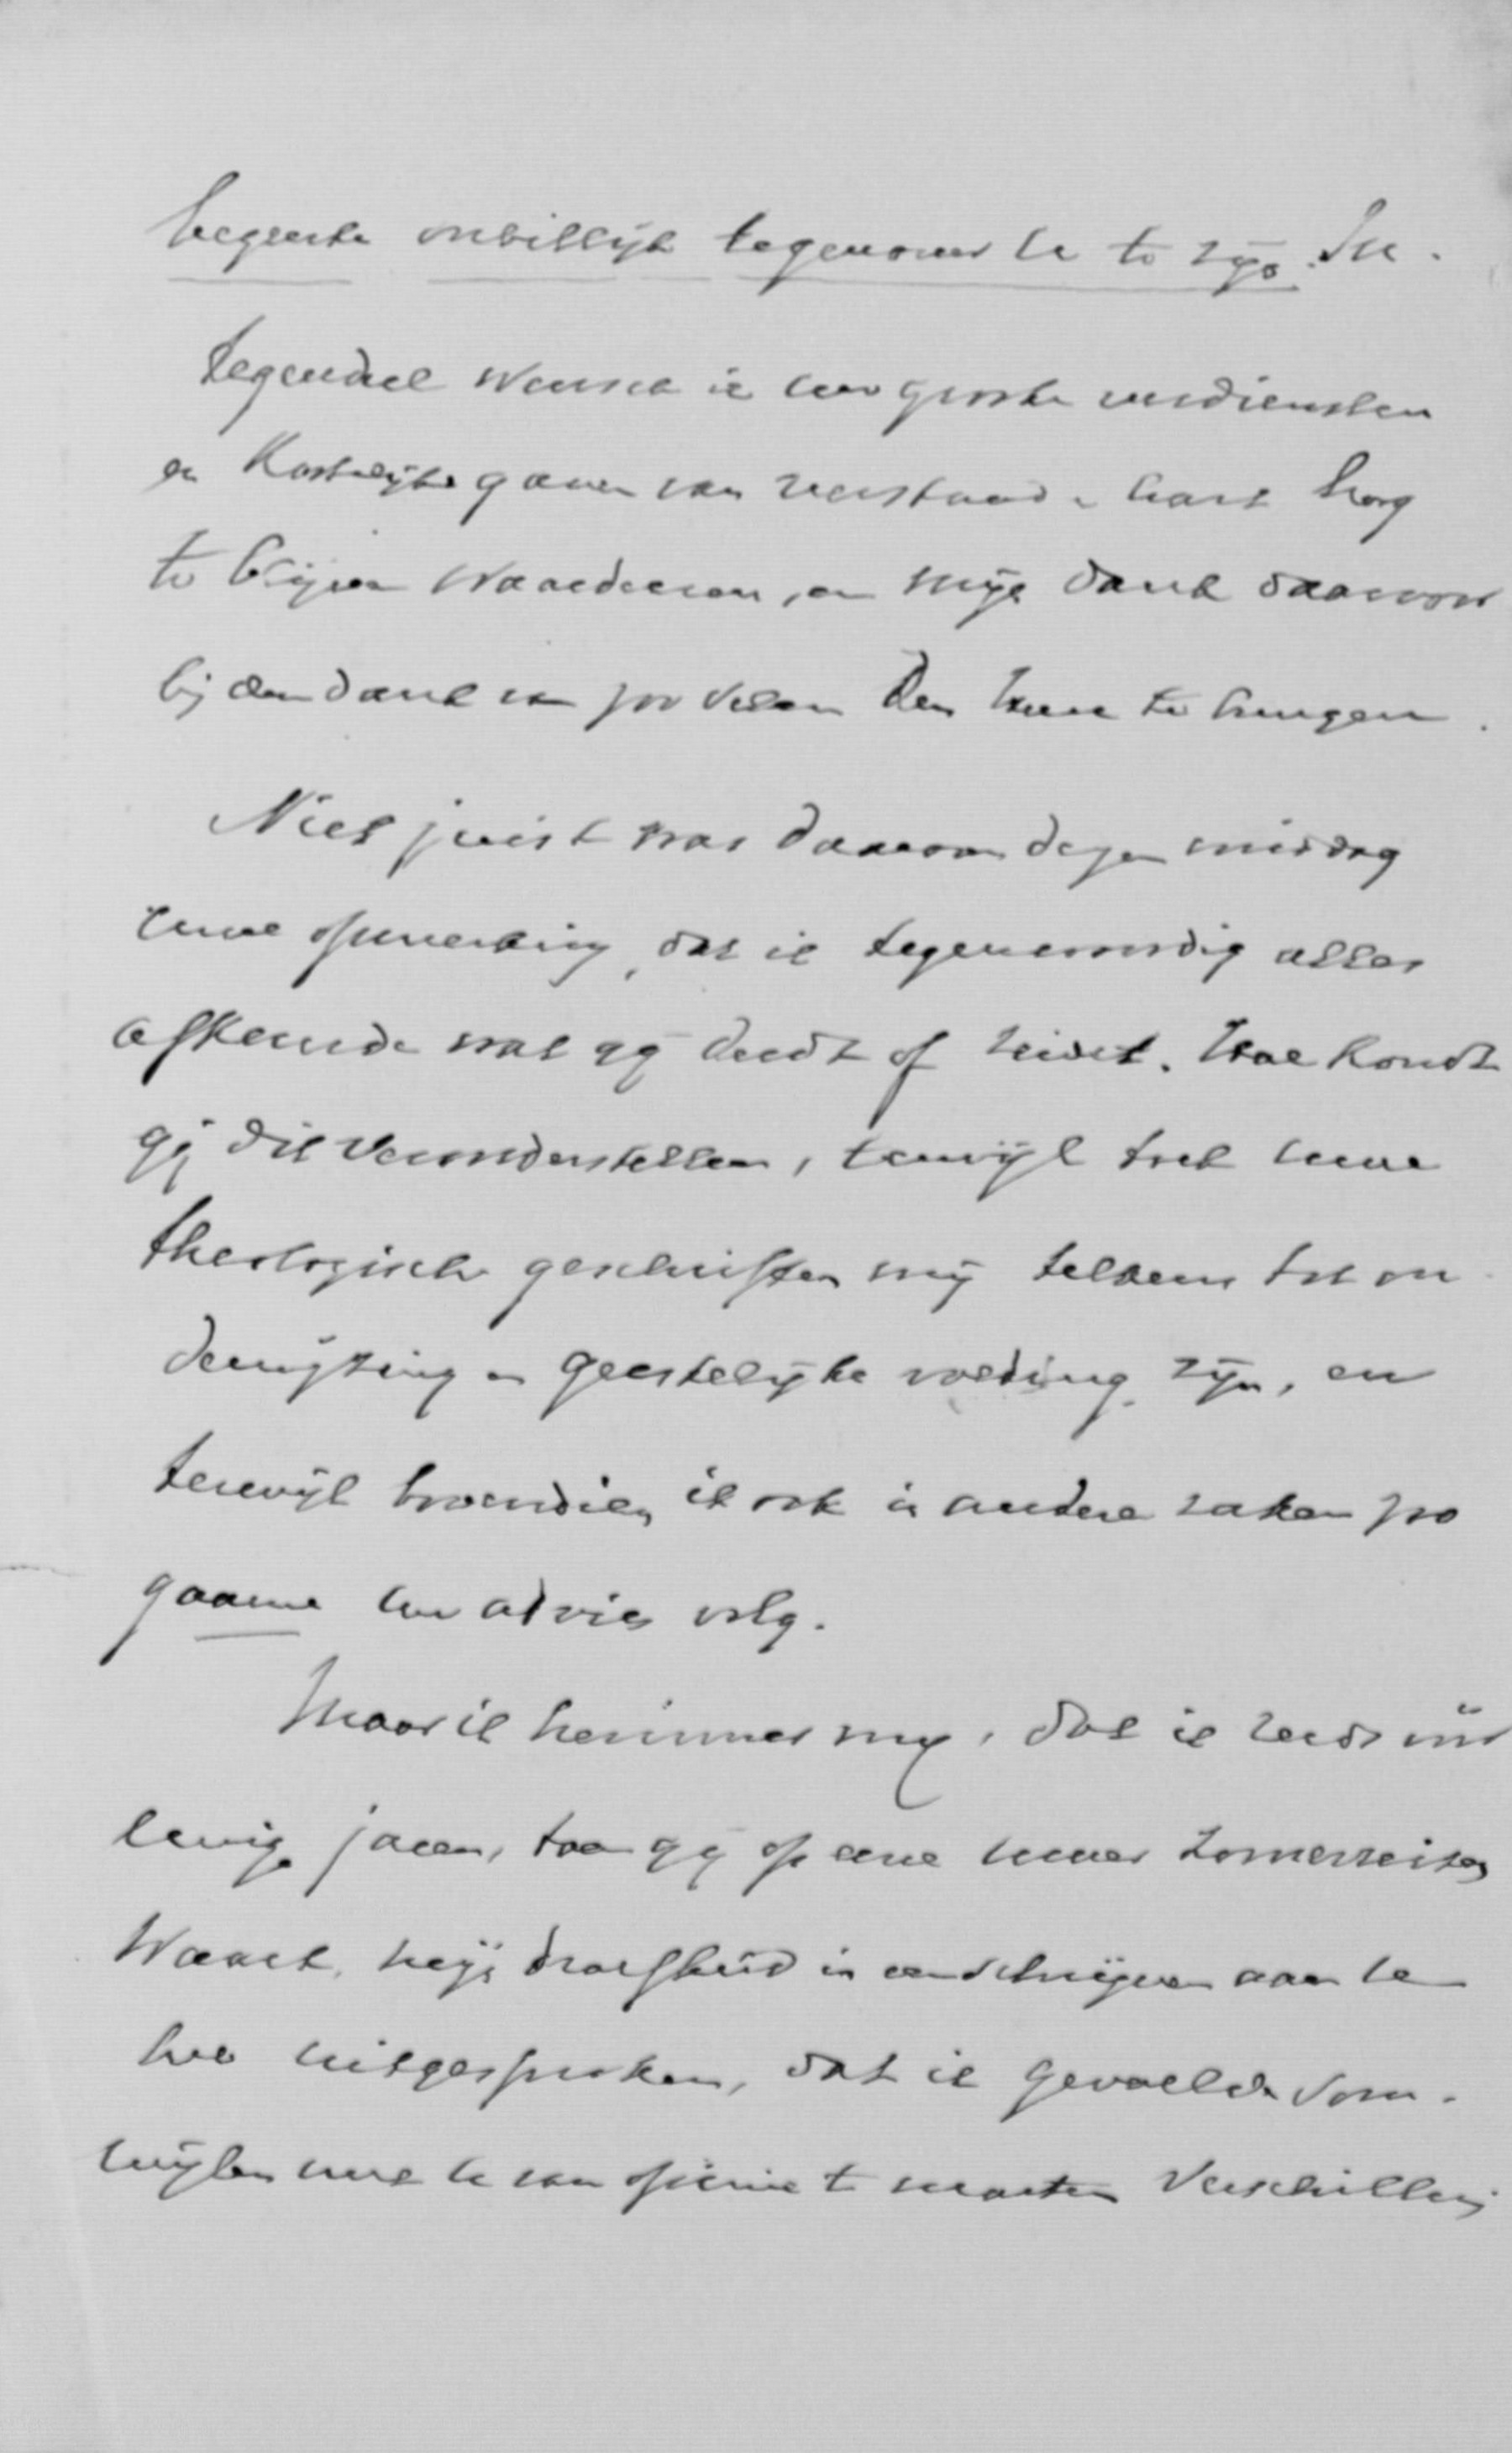 begeerte onbillijk tegenover U te zijn. In
tegendeel wensch ik uw groote verdiensten
en kostelijke gaven van verstand en hart hoog
te blijven waardeeren, en mijn dank daarvoor
bij den dank van zoo velen den Heere te brengen.
Niet juist was daarom dezen middag
uwe opmerking, dat ik tegenwoordig alles
afkeurde wat gij deedt of zeidet. Hoe kondt
gij dit veronderstellen, terwijl toch uwe
theologische geschriften mij telkens tot on
derwijzing en geestelijke voeding zijn, en
terwijl bovendien ik ook in andere zaken zoo
gaarne uw advies volg.
Maar ik herinner mij, dat ik reeds vóór
eenige jaren, toen gij op eene uwer zomerreizen
waart, mijn droefheid in een schrijven aan U
heb uitgesproken, dat ik gevoelde som
wijlen met U van opinie te moeten verschillen